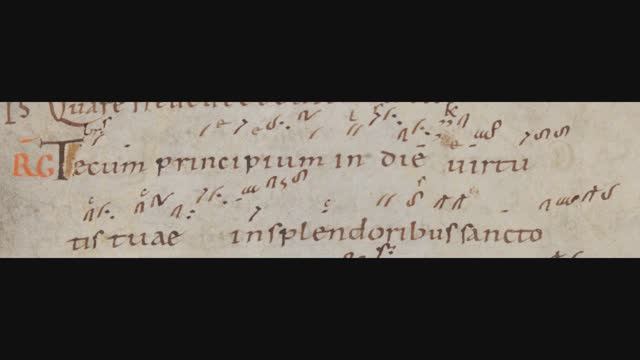 Ps Quare fremuer
RG Tecum principium in diē uirtu
tis tuae insplendoribus sancto